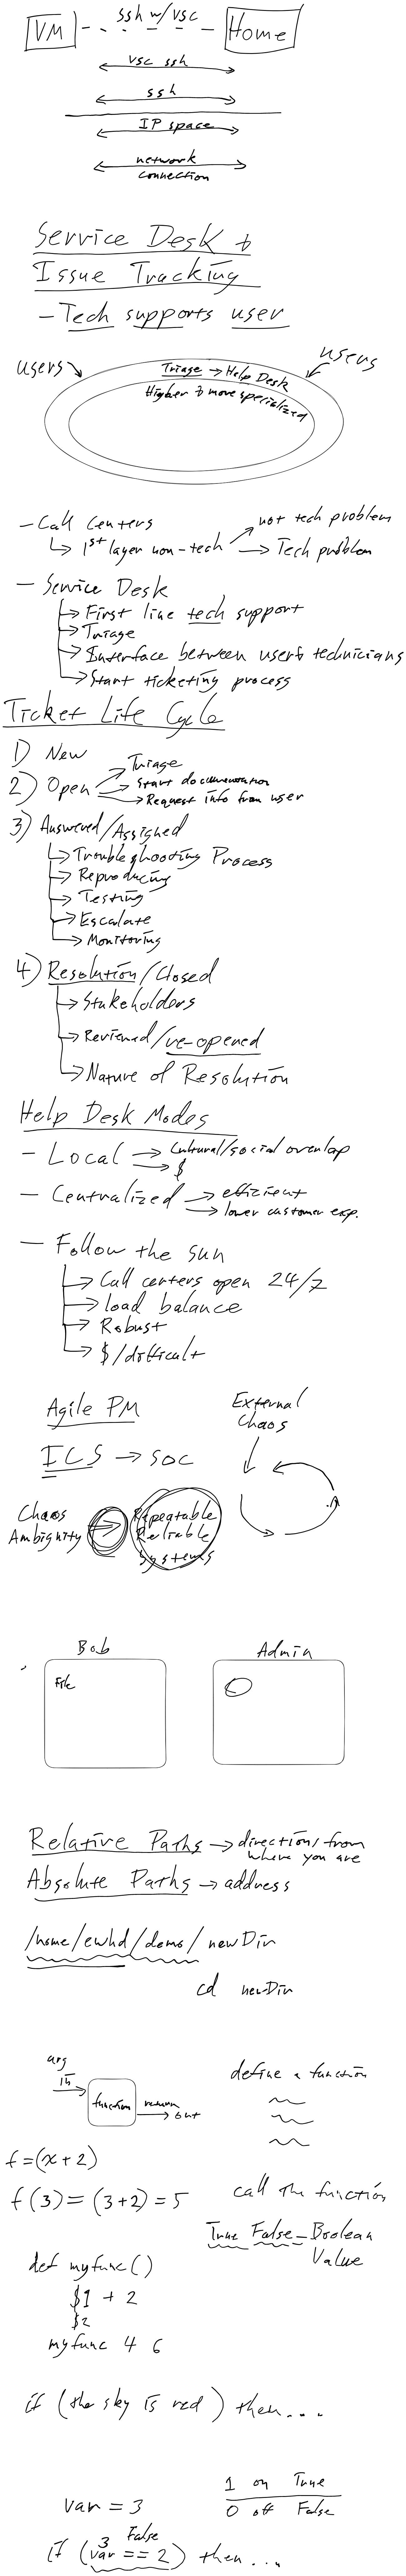 VM
ssh w/vsc
Home
vsc ssh
ssh
IP space
network
connection
Service Desk &
Issue Tracking
- Tech supports user
users
users
Triage → Help Desk
Higher & more specialized
- Call Centers
↳ 1st layer non-tech
→ not tech problem
→ Tech problem
- Service Desk
→ First line tech support
→ Triage
→ Interface between user & technicians
→ Start ticketing process
Ticket Life Cycle
1) New
2) Open
→ Triage
→ Start documentation
→ Request info from user
3) Answered/Assigned
→ Troubleshooting Process
→ Reproducing
→ Testing
→ Escalate
→ Monitoring
4) Resolution/Closed
→ Stakeholders
→ Reviewed/re-opened
→ Nature of Resolution
Help Desk Modes
- Local → Cultural/social overlap
→ $
- Centralized → efficient
→ lower customer exp.
- Follow the sun
→ Call centers open 24/7
→ load balance
→ Robust
→ $/difficult
Agile PM
External
Chaos
ICS → SOC
Chaos
Ambiguity
Repeatable
Reliable
Systems
Bob
Admin
File
Relative Paths → direction/from
where you are
Absolute Paths → address
/home/ewhd/demo/newDir
cd newDir
arg
in
function
return
out
define a function
f=(x+2)
f(3)=(3+2)=5
call the function
True False - Boolean
Value
def myfunc()
$1 + 2
$2
myfunc 4 6
if (the sky is red) then....
var = 3
1 on True
0 off False
3 False
if (var == 2) then...